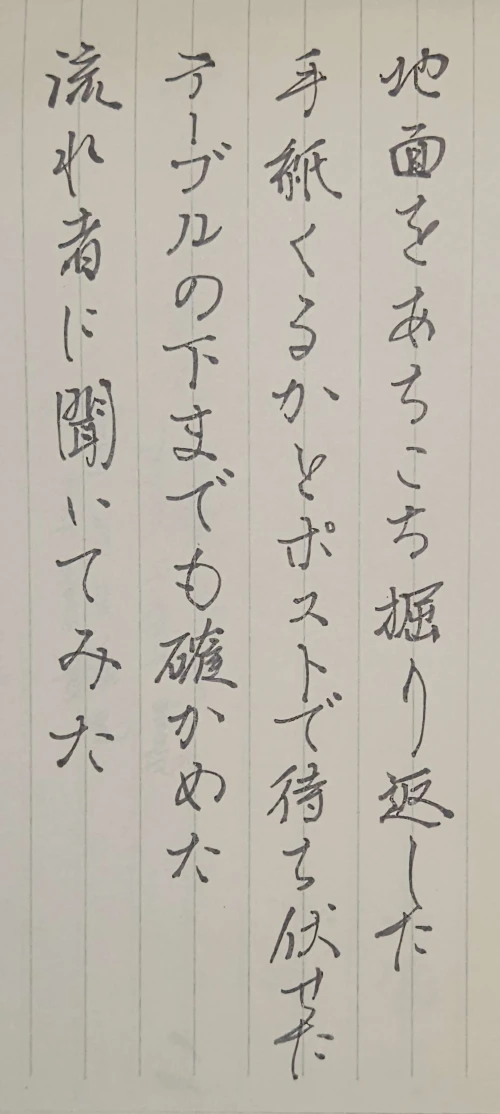 地面をあちこち掘り返した
手紙くるかとポストで待ち伏せた
テーブルの下までも確かめた
流れ者に聞いてみた